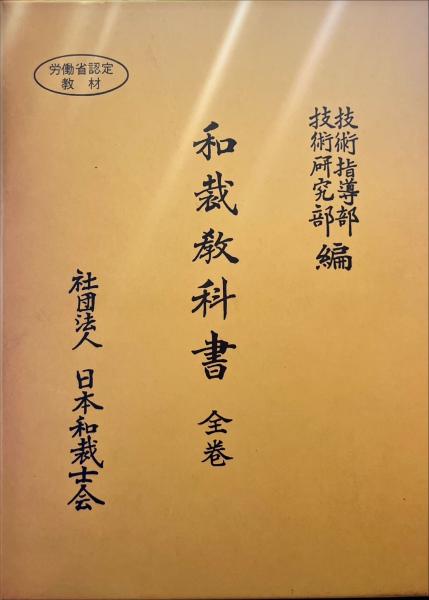 労働省認定
教材
技術指導部
技術研究部
編
和裁教科書 全巻
社団法人 日本和裁士会